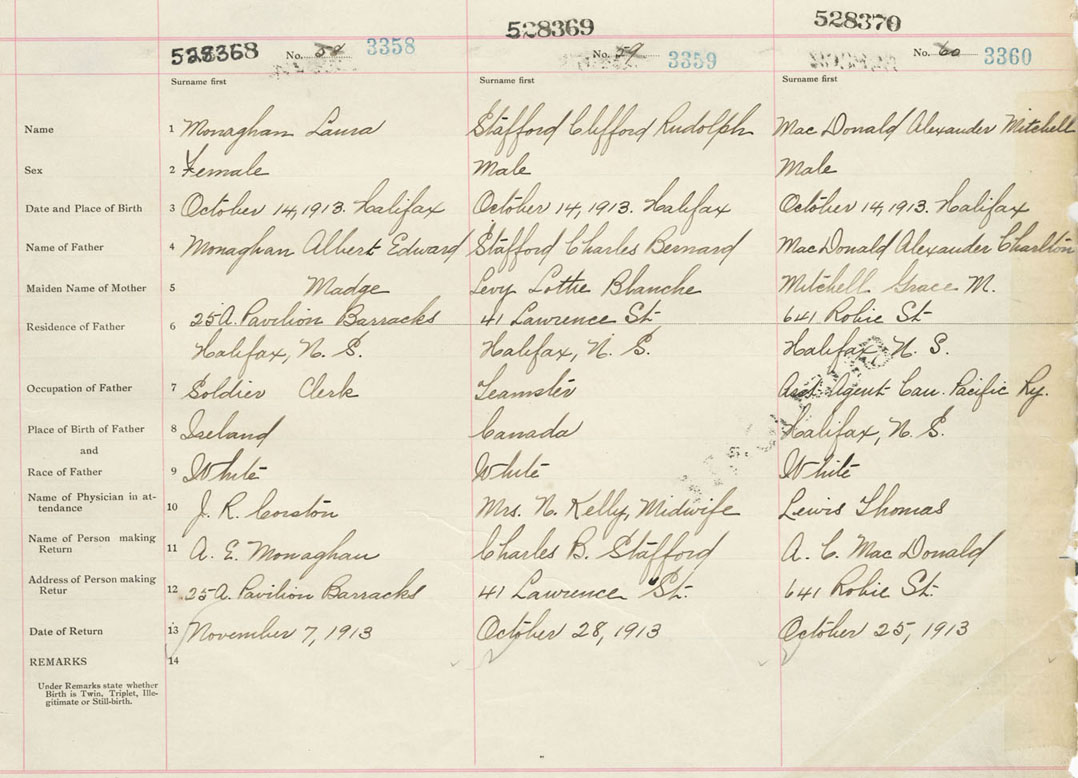 528368 528369 528370
No. 58 3358 No. 59 3359 No. 60 3360
Surname first Surname first Surname first
Name 1 Monaghan Laura Stafford Clifford Rudolph Mac Donald Alexander Mitchell
Sex 2 Female Male Male
Date and Place of Birth 3 October 14, 1913. Halifax October 14, 1913. Halifax October 14, 1913. Halifax
Name of Father 4 Monaghan Albert Edward Stafford Charles Bernard Mac Donald Alexander Charlton
Maiden Name of Mother 5 Madge Levy Lottie Blanche Mitchell Grace M.
Residence of Father 6 25A. Pavilion Barracks 41 Lawrence St. 641 Robie St.
Halifax, N. S. Halifax, N. S. Halifax N. S.
Occupation of Father 7 Soldier Clerk Teamster Asst. Agent Can. Pacific Ry.
Place of Birth of Father 8 Ireland Canada Halifax, N. S.
and
Race of Father 9 White White White
Name of Physician in at-
tendance 10 J. R. Corston Mrs. N. Kelly, Midwife Lewis Thomas
Name of Person making
Return 11 A. E. Monaghan Charles B. Stafford A. C. Mac Donald
Address of Person making
Retur 12 25A. Pavilion Barracks 41 Lawrence St. 641 Robie St.
Date of Return 13 November 7, 1913 October 28, 1913 October 25, 1913
REMARKS 14
Under Remarks state whether
Birth is Twin, Triplet, Ille-
gitimate or Still-birth.